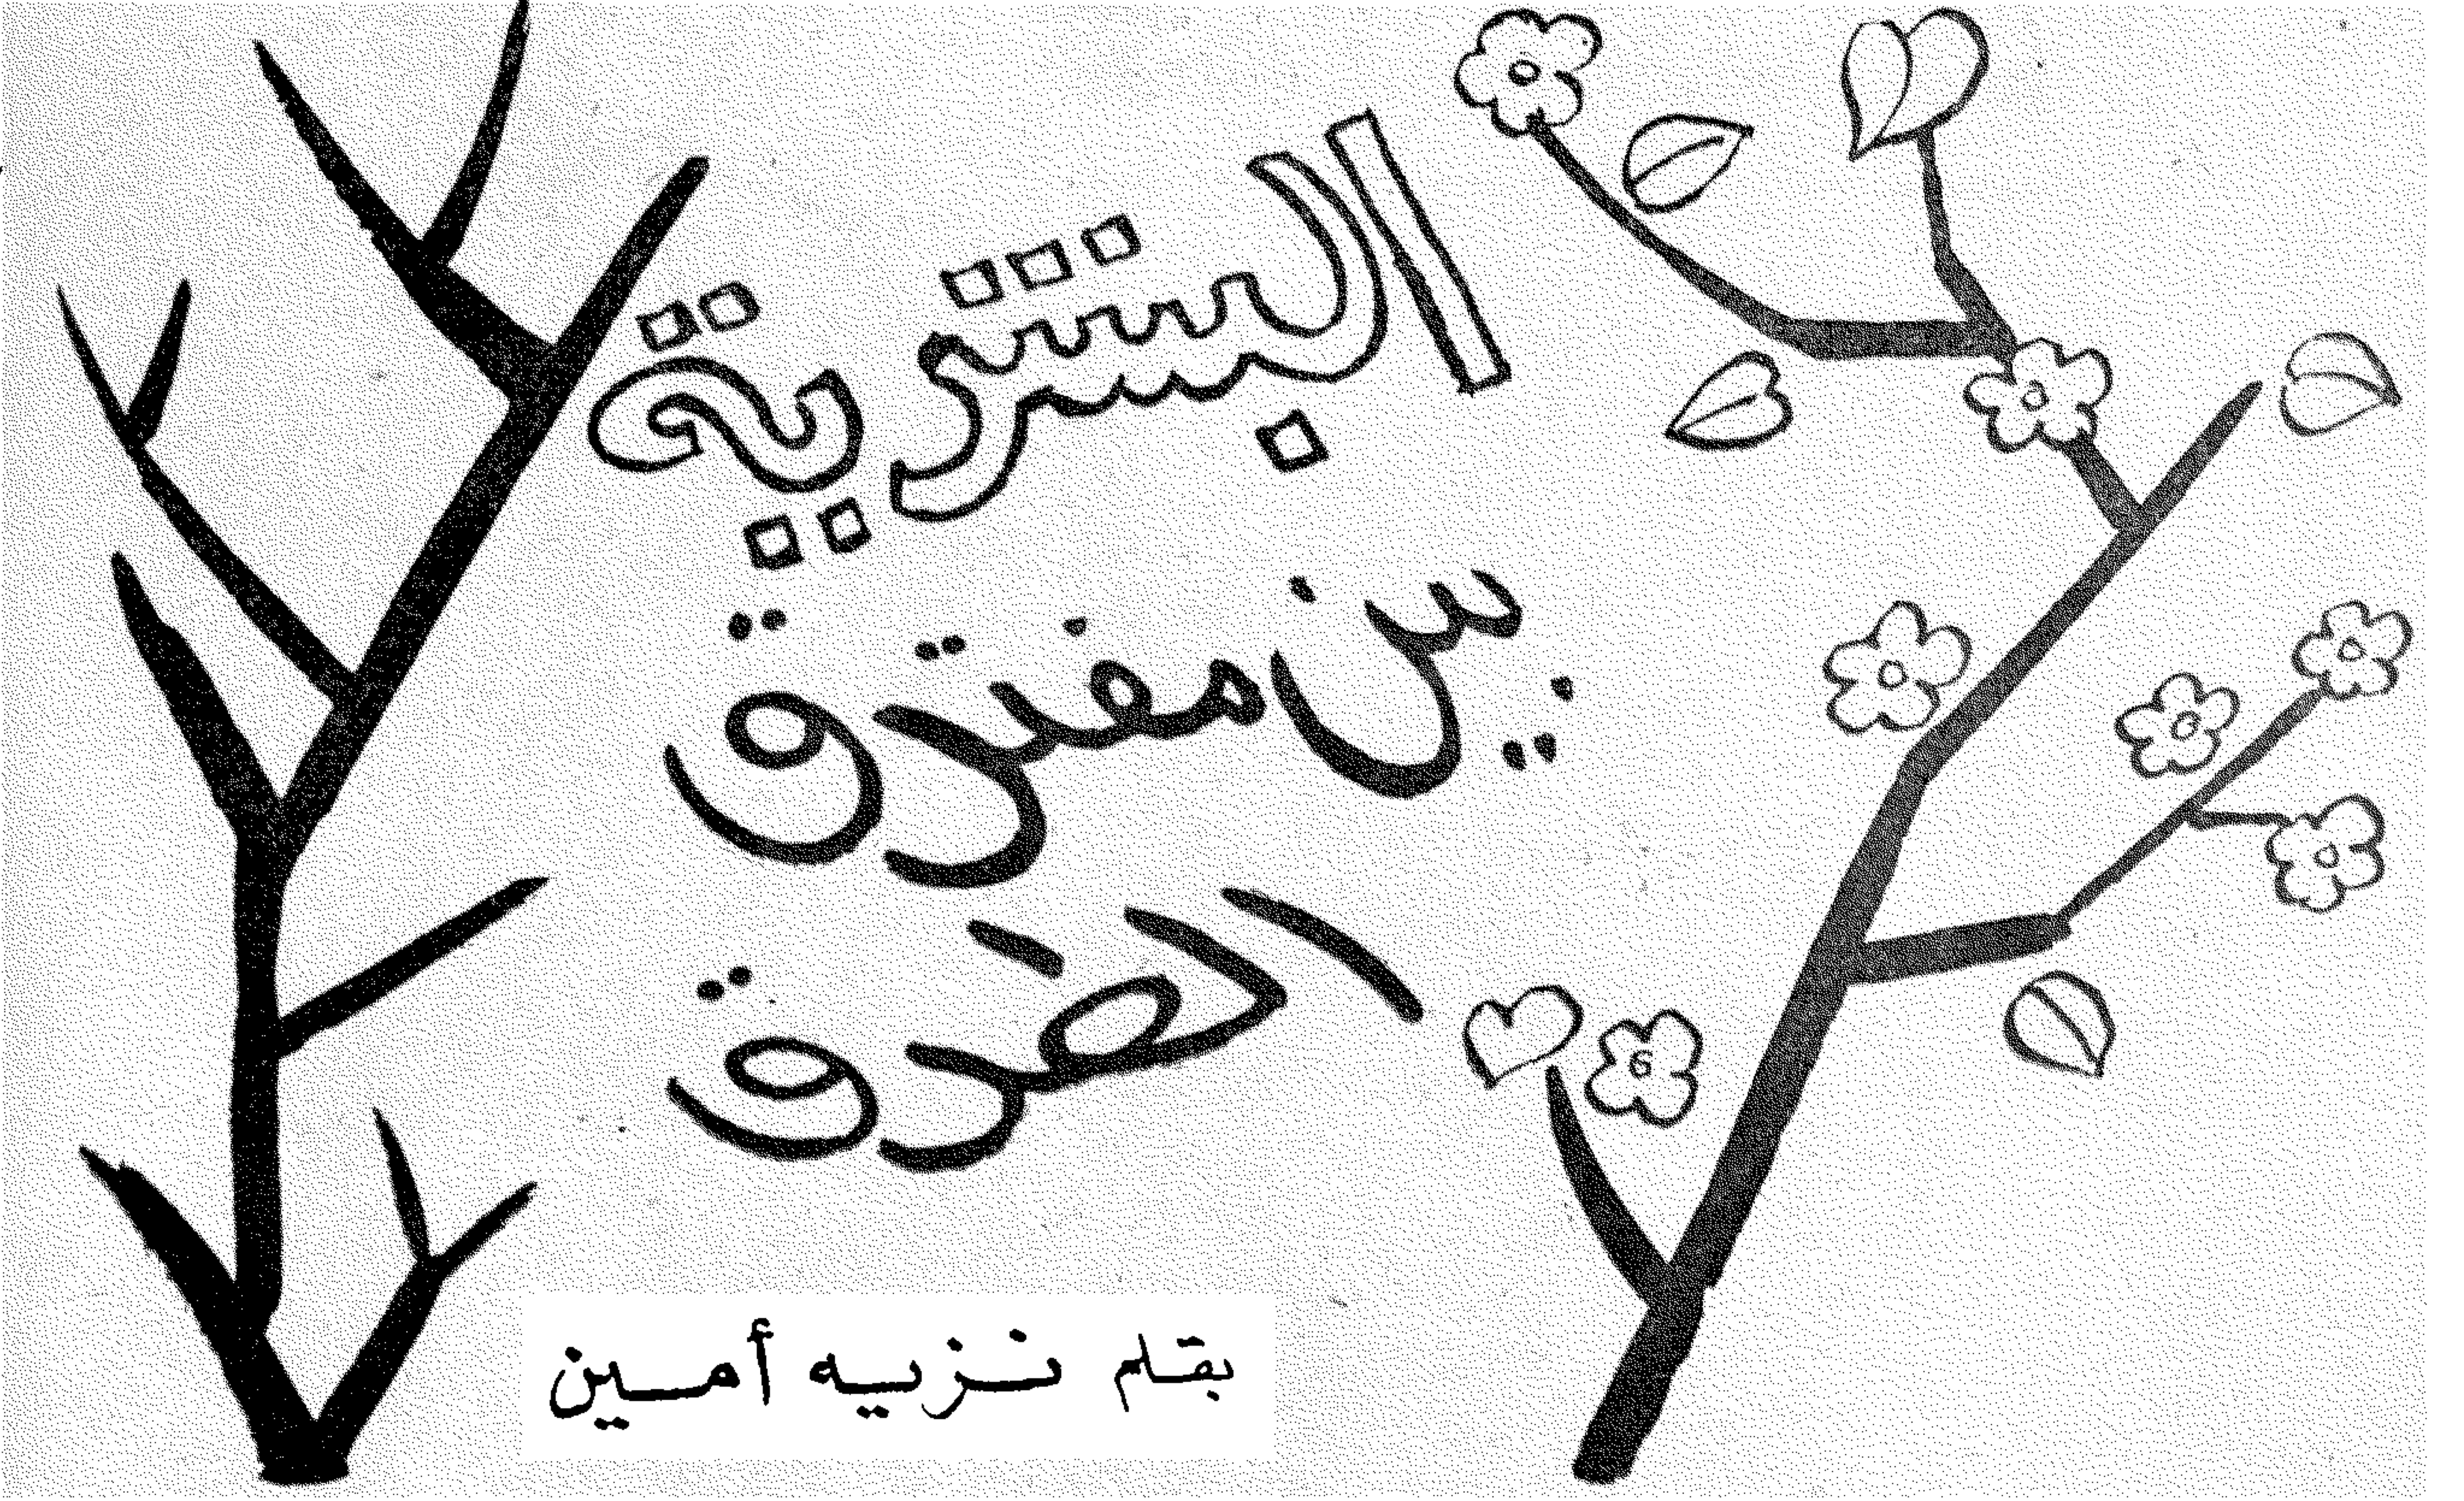 البشرية
بين مفترق
الفرق
بقلم نزيه أمين